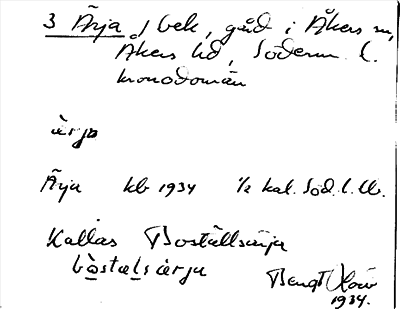 3 Ärja, bek, gård i Åkers sn,
Åkers hd, Söderm. l.
kronodomän
ärja
Ärja kb 1934 1/2 kal. Söd. l.
Kallas Boställsärja
bòstalsärja
Bengt
1934.